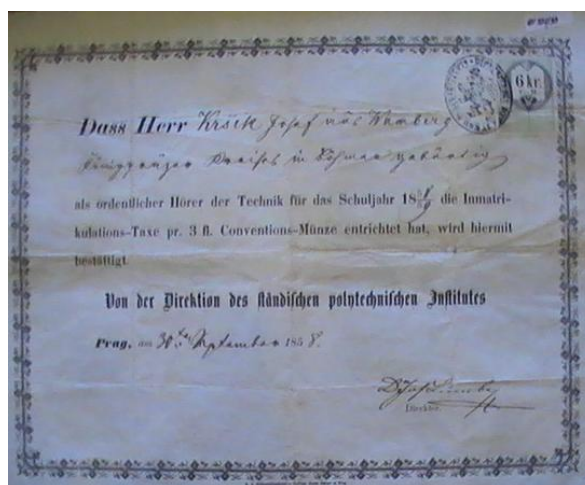 6 kr.
Dass Herr Kršik Josef aus Wamberg
Königgrätzer Kreises in Böhmen gebürtig
als ordentlicher Hörer der Technik für das Schuljahr 1858/59 die Inmatri-
kulations-Taxe pr. 3 fl. Conventions-Münze entrichtet hat, wird hiermit
bestätigt.
Von der Direktion des ständischen polytechnischen Institutes
Prag, am 30ten September 1858.
Direktor.